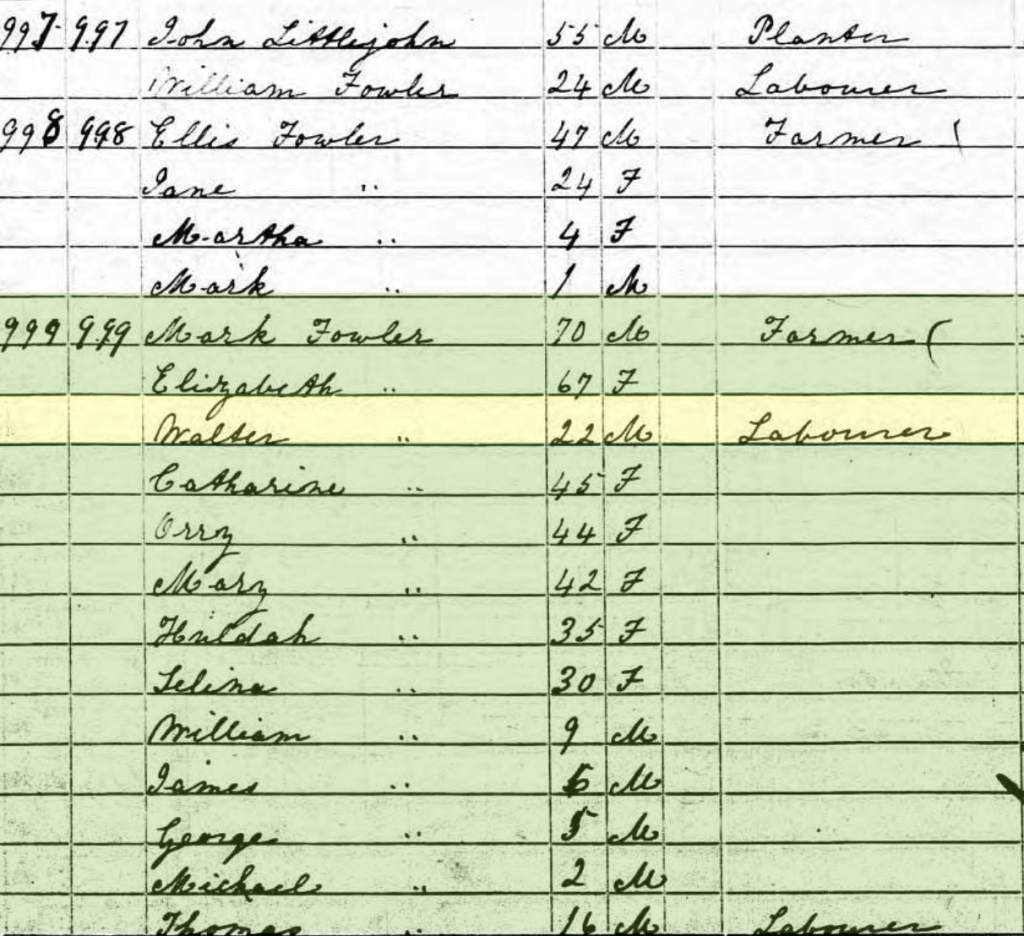 997 997 John Littlejohn 55 M Planter
William Fowler 24 M Labourer
998 998 Ellis Fowler 47 M Farmer
Jane " 24 F
Martha " 4 F
Mark " 1 M
999 999 Mark Fowler 70 M Farmer
Elizabeth " 67 F
Walter " 22 M Labourer
Catharine " 45 F
Orry " 44 F
Mary " 42 F
Huldah " 35 F
Selina " 30 F
William " 9 M
James " 6 M
George " 5 M
Michael " 2 M
Thomas " 16 M Labourer